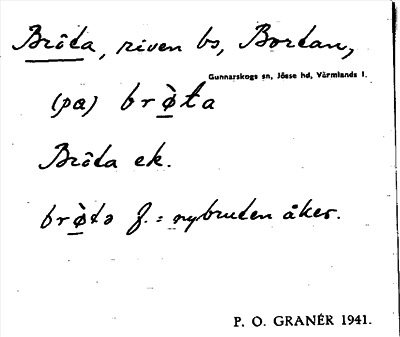 Brôta, riven bs, Bordan,
Gunnarskogs sn, Jösse hd, Värmlands l.
(pa) brø̀ta
Brôta ek.
brø̀tə f. = nybruten åker.
P. O. GRANÉR 1941.